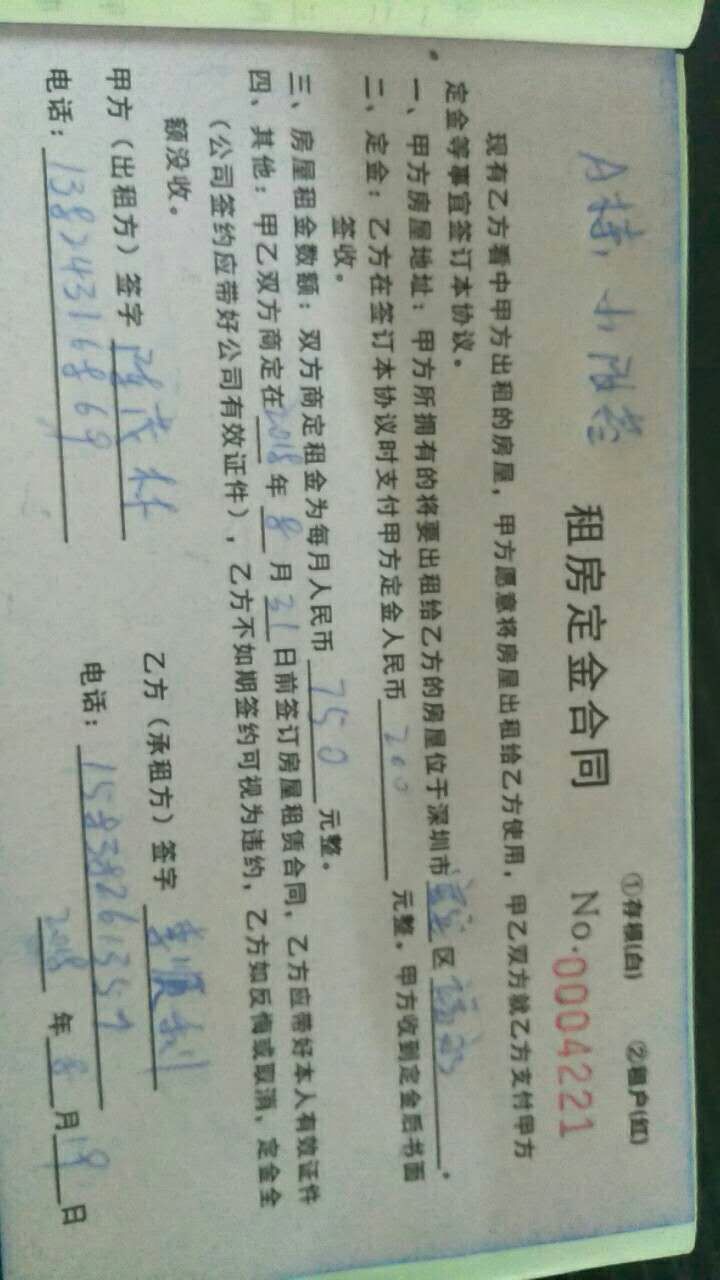 ①存根(白) ②租户(红)
租房定金合同 No.0004221
现有乙方看中甲方出租的房屋，甲方愿意将房屋出租给乙方使用，甲乙双方就乙方支付甲方
定金等事宜签订本协议。
一、甲方房屋地址：甲方所拥有的将要出租给乙方的房屋位于深圳市 区 。
二、定金：乙方在签订本协议时支付甲方定金人民币 200 元整。甲方收到定金后书面
签收。
三、房屋租金数额：双方商定租金为每月人民币 750 元整。
四、其他：甲乙双方商定在2018年8月31日前签订房屋租赁合同，乙方应带好本人有效证件
（公司签约应带好公司有效证件），乙方不如期签约可视为违约，乙方如反悔或取消，定金全
额没收。
甲方（出租方）签字 陈茂林 乙方（承租方）签字 李顺利
电话：13824316869 电话：15838261357
2018年8月19日